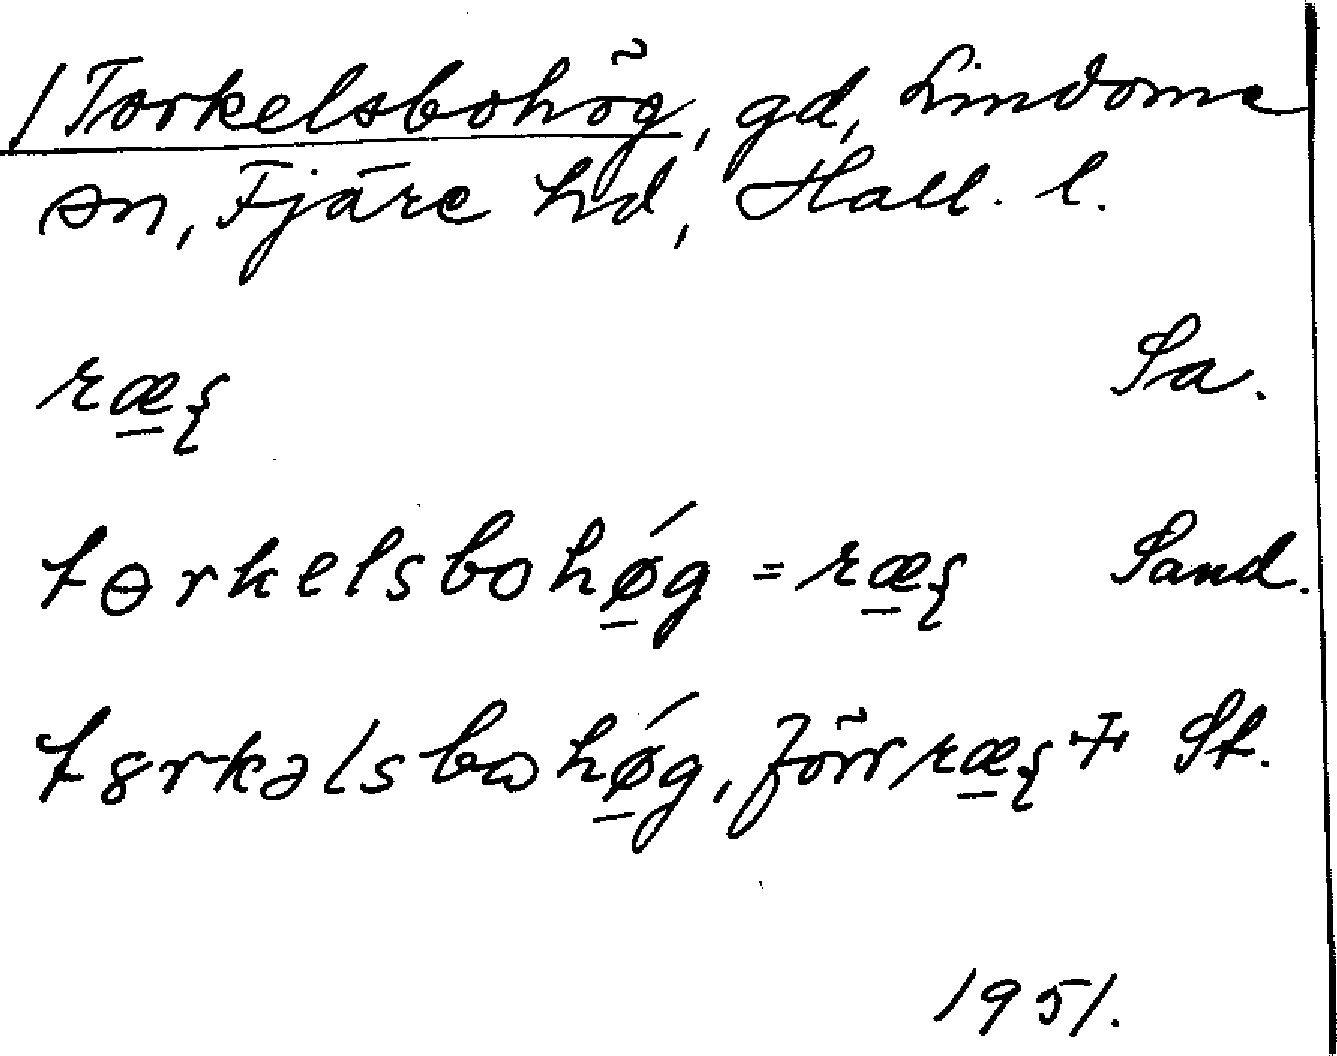 /Torkelsbohög, gd, Lindome
sn, Fjäre hd, Hall. l.
ræ̲ξ Sa.
tɵrkelsbohǿ̲g = ræ̲ξ Sand.
t8rkəlsbωhǿ̲g, förr ræ̲ξ + St.
1951.